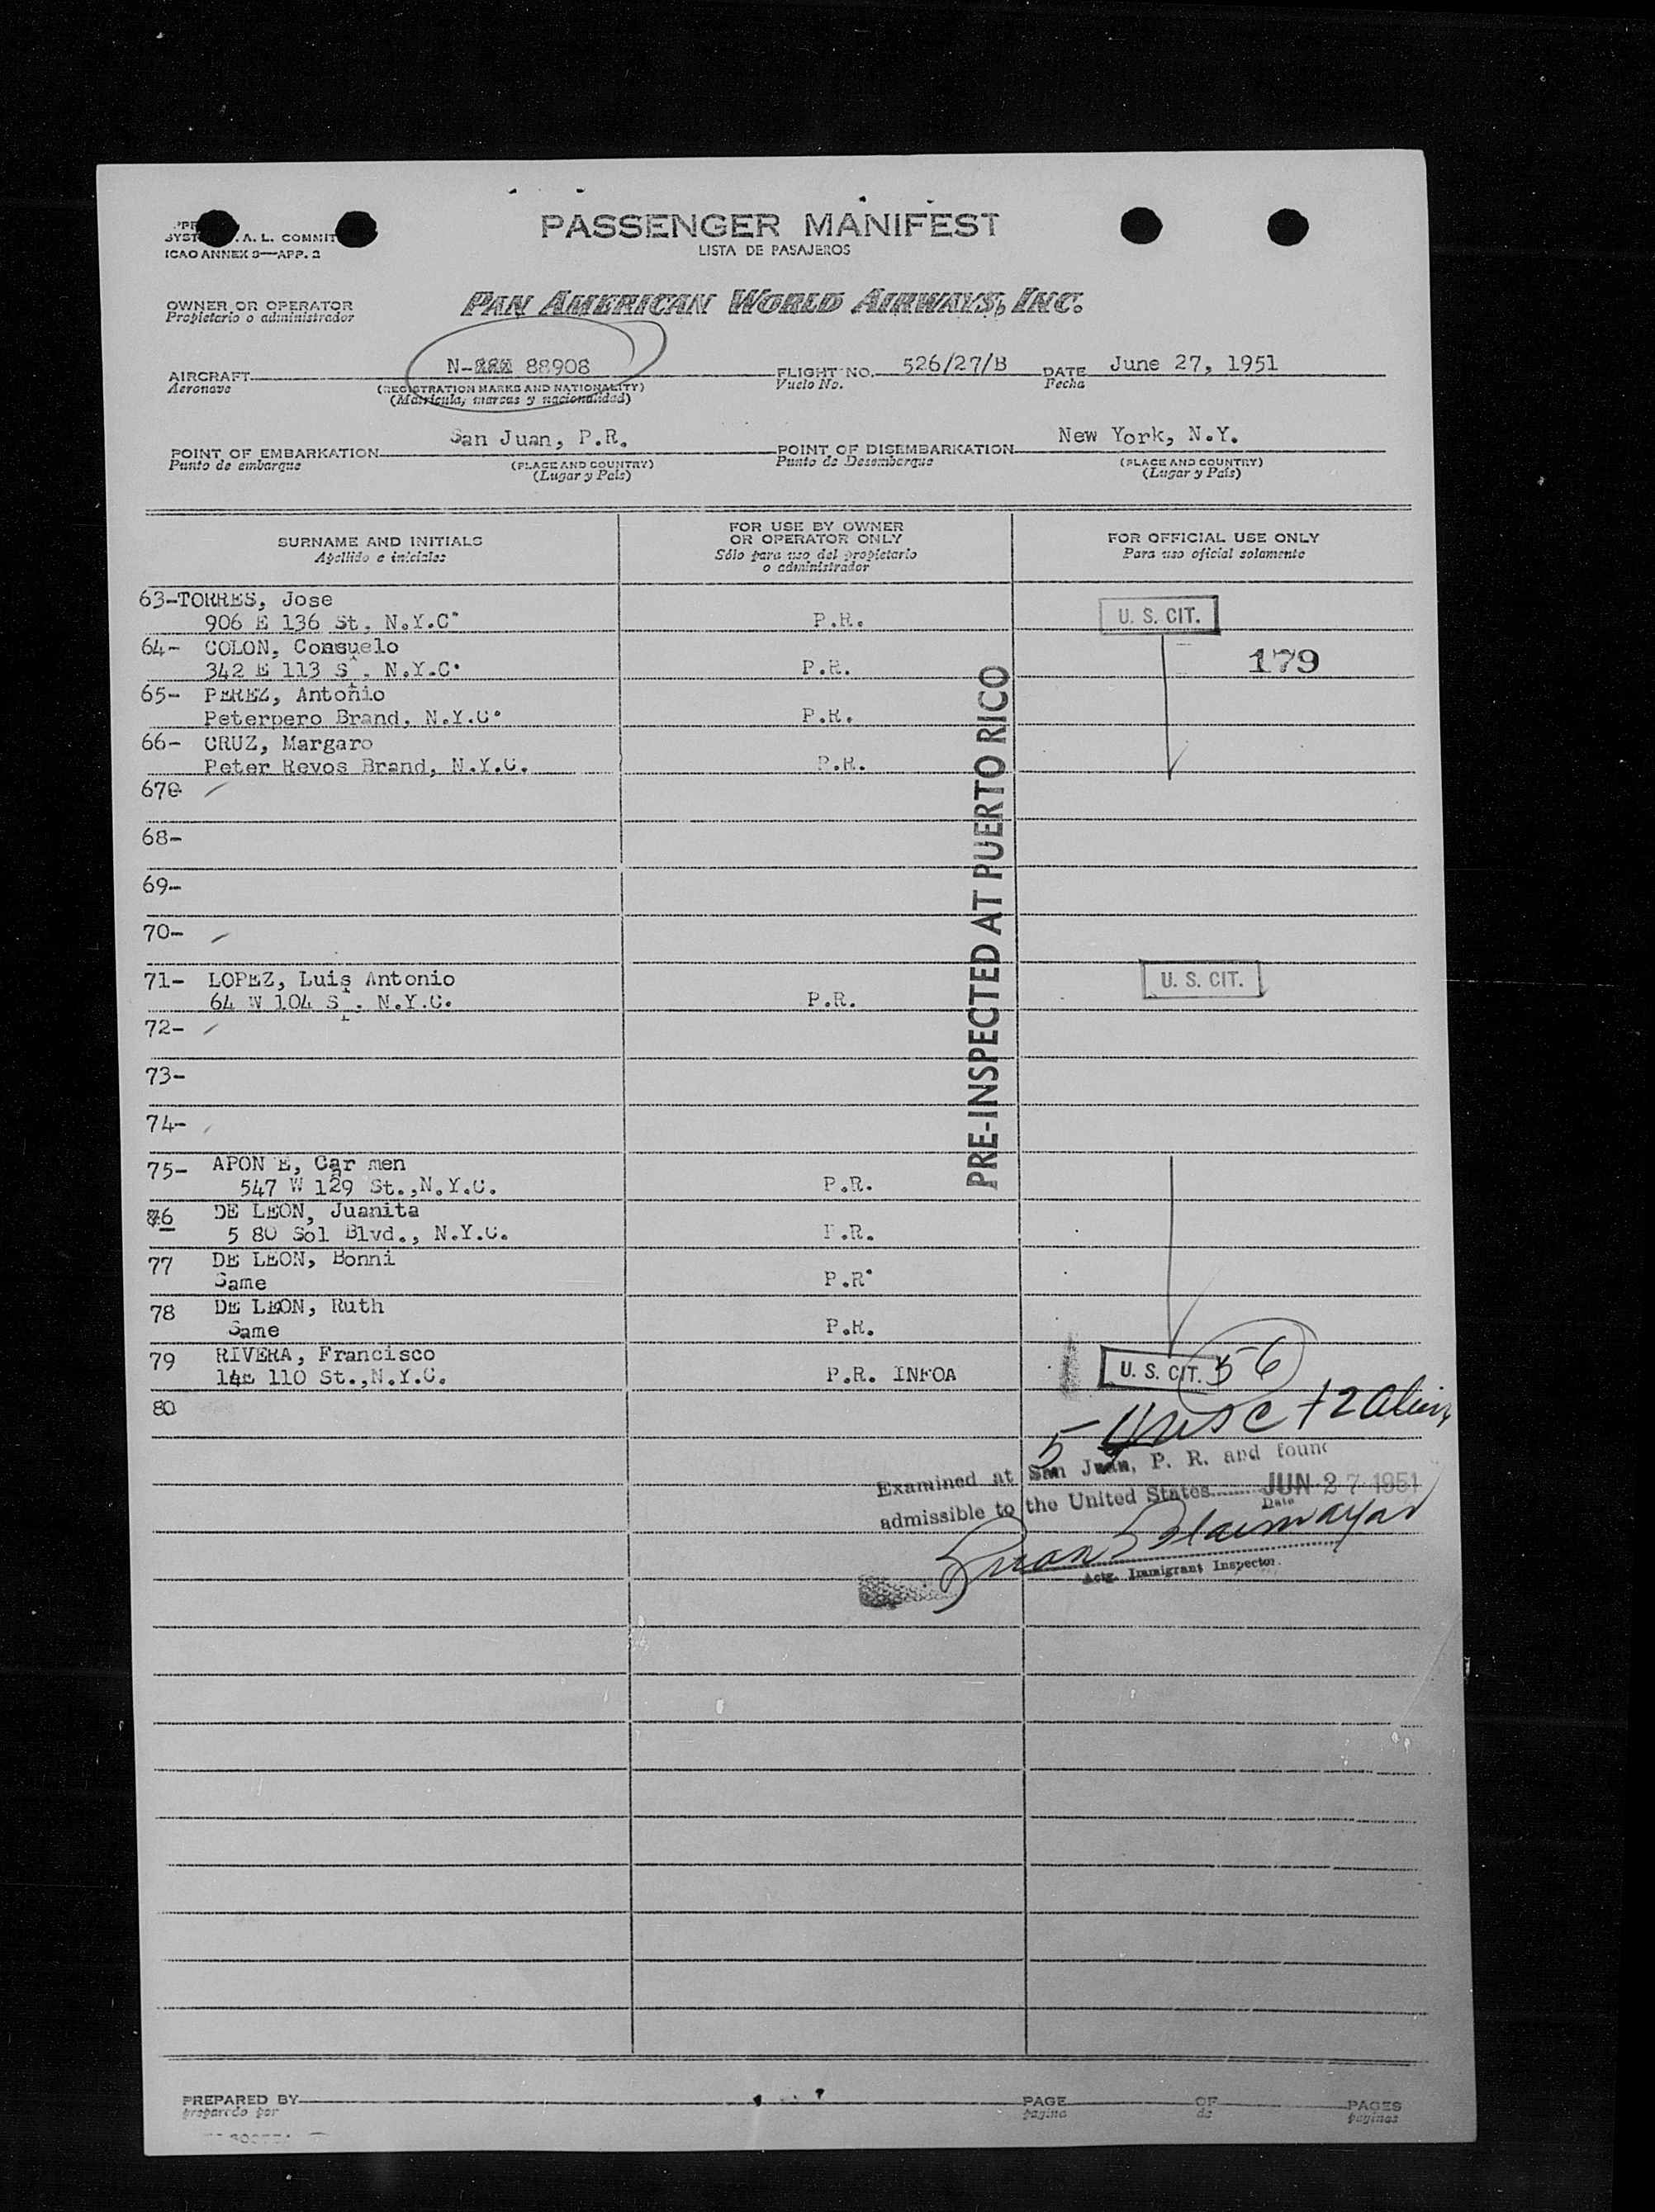 ICAO ANNEX 9—APP. 2
PASSENGER MANIFEST
LISTA DE PASAJEROS
OWNER OR OPERATOR
Propietario o administrador
PAN AMERICAN WORLD AIRWAYS, INC.
AIRCRAFT N- 88908 FLIGHT NO. 526/27/B DATE June 27, 1951
Aeronave (REGISTRATION MARKS AND NATIONALITY) Vuelo No. Fecha
(Matricula, marcas y nacionalidad)
POINT OF EMBARKATION San Juan, P.R. POINT OF DISEMBARKATION New York, N.Y.
Punto de embarque (PLACE AND COUNTRY) Punto de Desembarque (PLACE AND COUNTRY)
(Lugar y País) (Lugar y País)
SURNAME AND INITIALS FOR USE BY OWNER OR OPERATOR ONLY FOR OFFICIAL USE ONLY
Apellido e iniciales Sólo para uso del propietario o administrador Para uso oficial solamente
63-TORRES, Jose
906 E 136 St. N.Y.C. P.R. U. S. CIT.
64- COLON, Consuelo
342 E 113 S . N.Y.C. P.R. 179
65- PEREZ, Antonio
Peterpero Brand, N.Y.C. P.R.
66- CRUZ, Margaro
Peter Revos Brand, N.Y.C. P.R.
67
68-
69-
70-
71- LOPEZ, Luis Antonio U. S. CIT.
64 W 104 St. N.Y.C. P.R.
72-
73-
74-
PRE-INSPECTED AT PUERTO RICO
75- APON E, Car men
547 W 129 St.,N.Y.C. P.R.
76 DE LEON, Juanita
5 80 Sol Blvd., N.Y.C. P.R.
77 DE LEON, Bonni
Same P.R.
78 DE LEON, Ruth
Same P.R.
79 RIVERA, Francisco
110 St.,N.Y.C. P.R. INFOA U. S. CIT. 56
80
54 usc + 2 alien
Examined at San Juan, P. R. and found
admissible to the United States JUN 27 1951
Date
Actg. Immigrant Inspector.
PREPARED BY PAGE OF PAGES
preparado por página de páginas